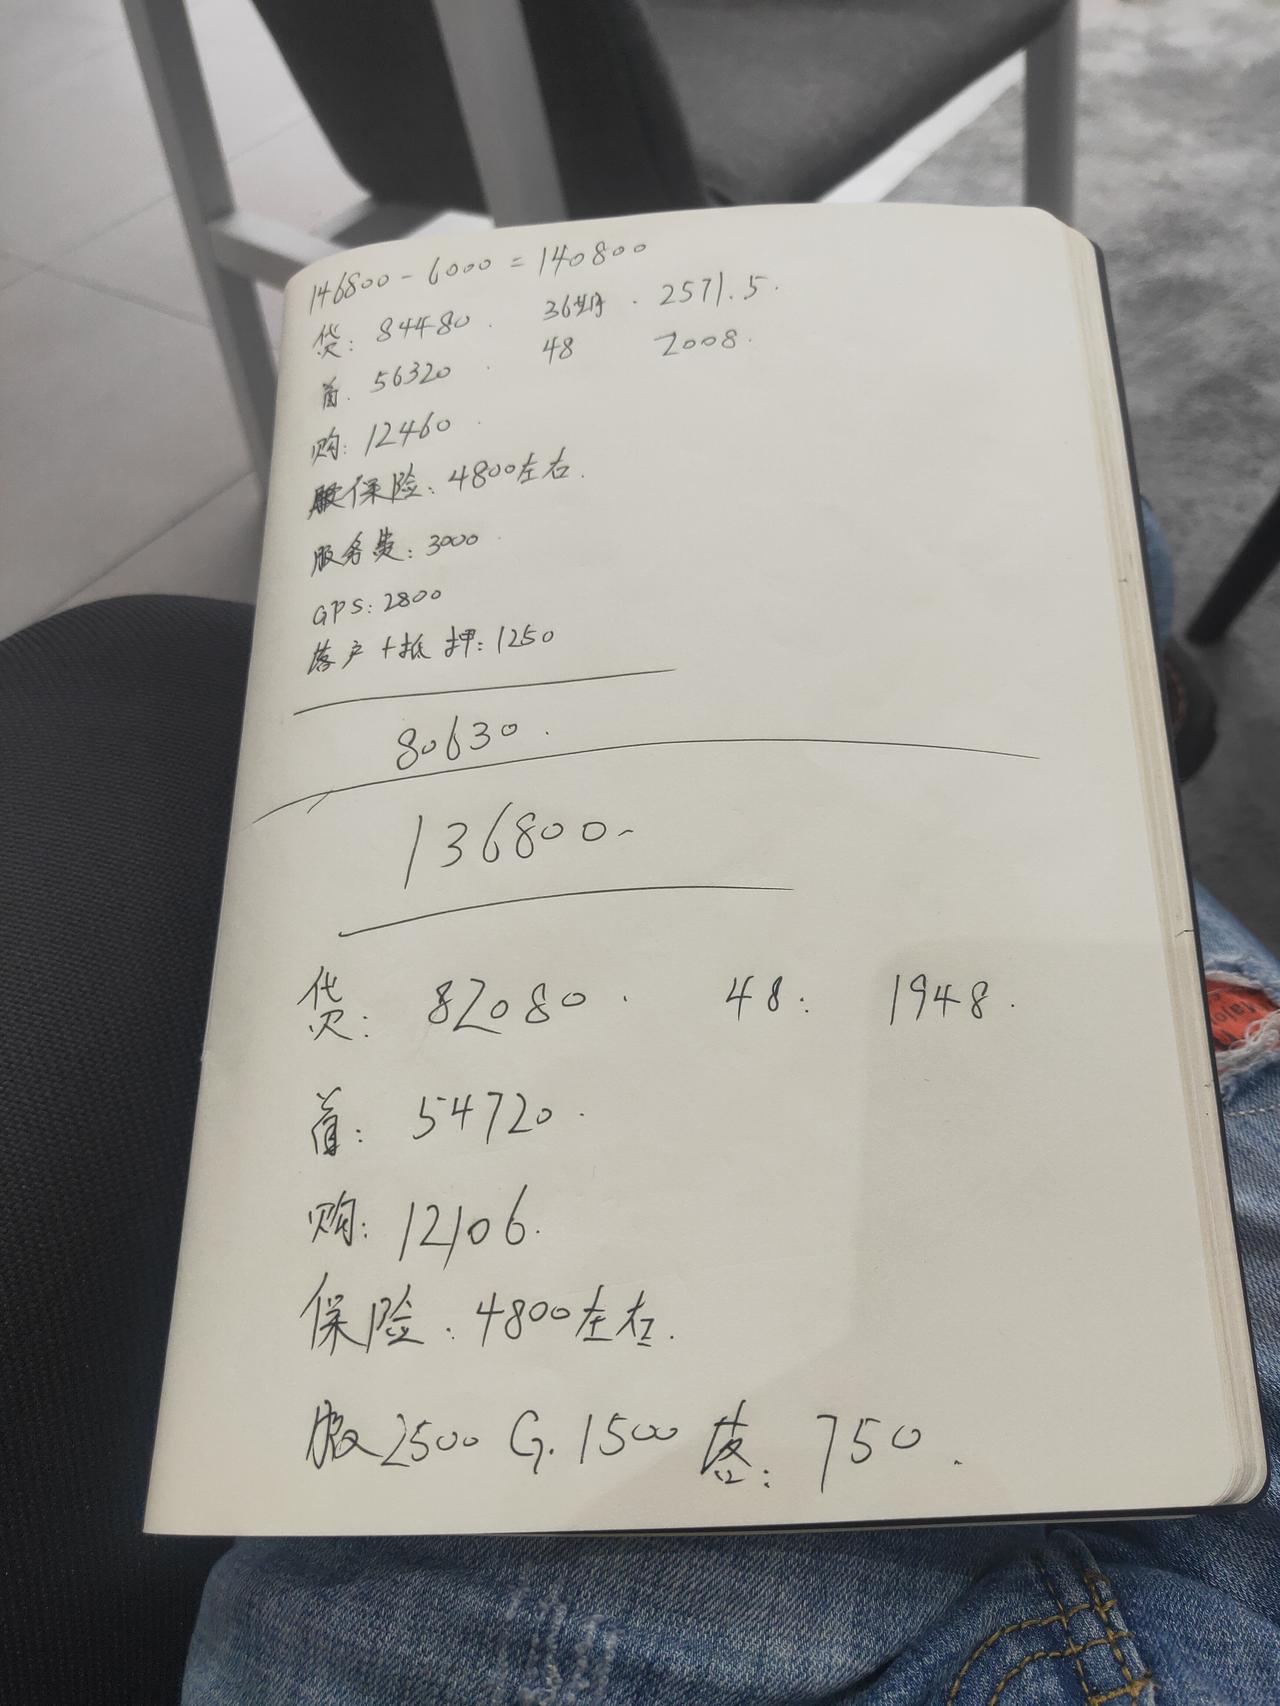 146800-6000=140800
贷:84480. 36期. 2571.5.
首.56320. 48 2008.
购:12460.
保险:4800左右.
服务费:3000.
GPS:2800
落户+抵押:1250
80630.
136800-
贷:82080. 48: 1948.
首:54720.
购:12106.
保险:4800左右.
服2500 G.1500 落:750.